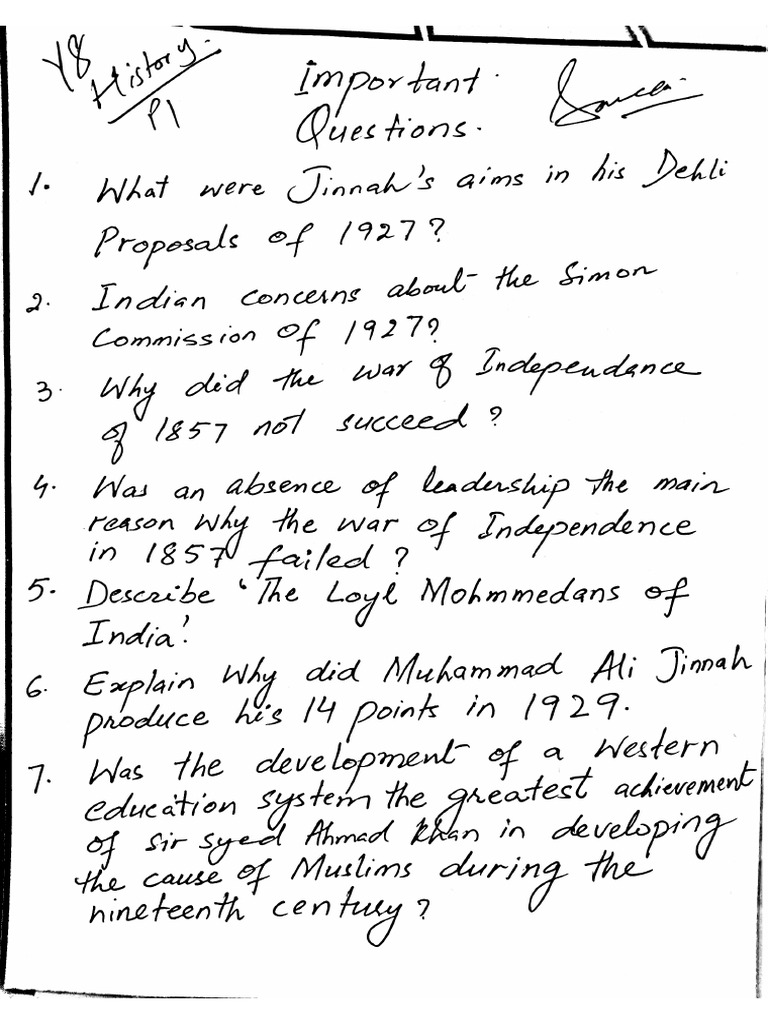 Y8
History.
P1
Important
Questions.
1. What were Jinnah's aims in his Dehli
Proposals of 1927?
2. Indian concerns about the Simon
Commission of 1927?
3. Why did the war of Independance
of 1857 not succeed?
4. Was an absence of leadership the main
reason why the war of Independence
in 1857 failed?
5. Describe 'The Loyl Mohmmedans of
India'.
6. Explain Why did Muhammad Ali Jinnah
produce his 14 points in 1929.
7. Was the development of a Western
education system the greatest achievement
of Sir Syed Ahmad Khan in developing
the cause of Muslims during the
nineteenth century?